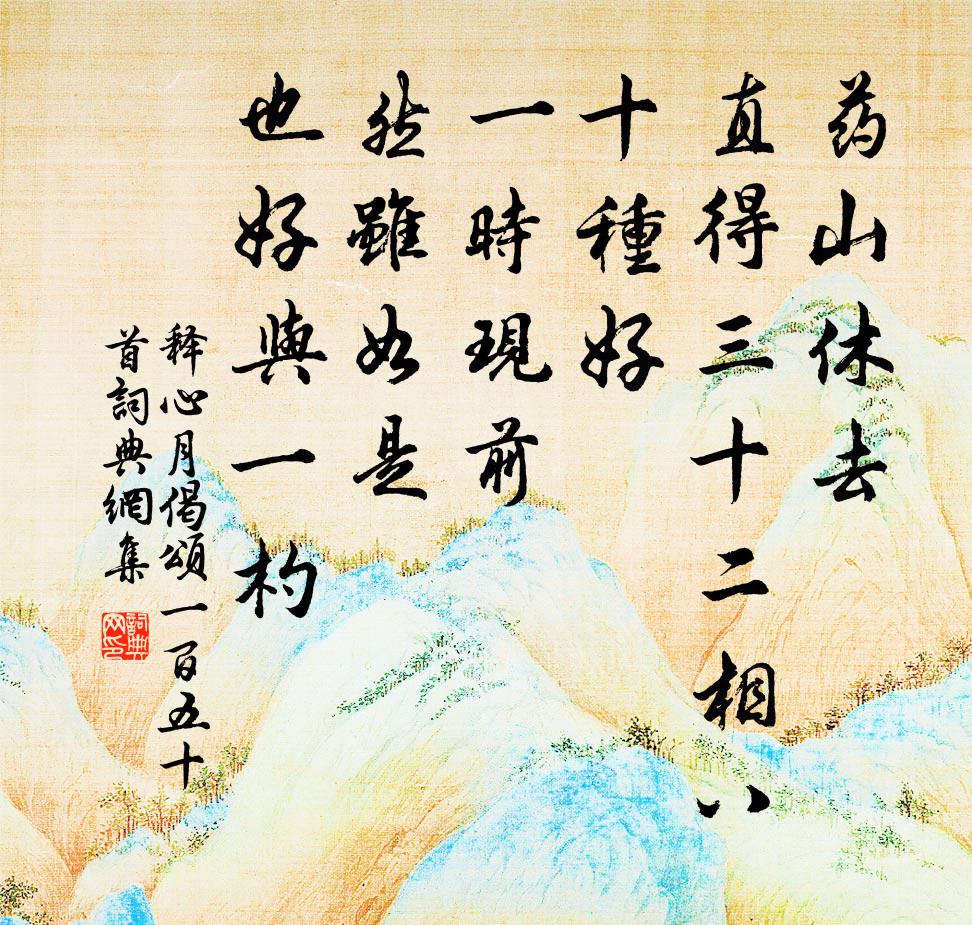 药山休去
直得三十二相八
十種好
一時現前
然雖如是
也好與一杓
释心月偈頌一百五十
首詞典網集
詞典
网印